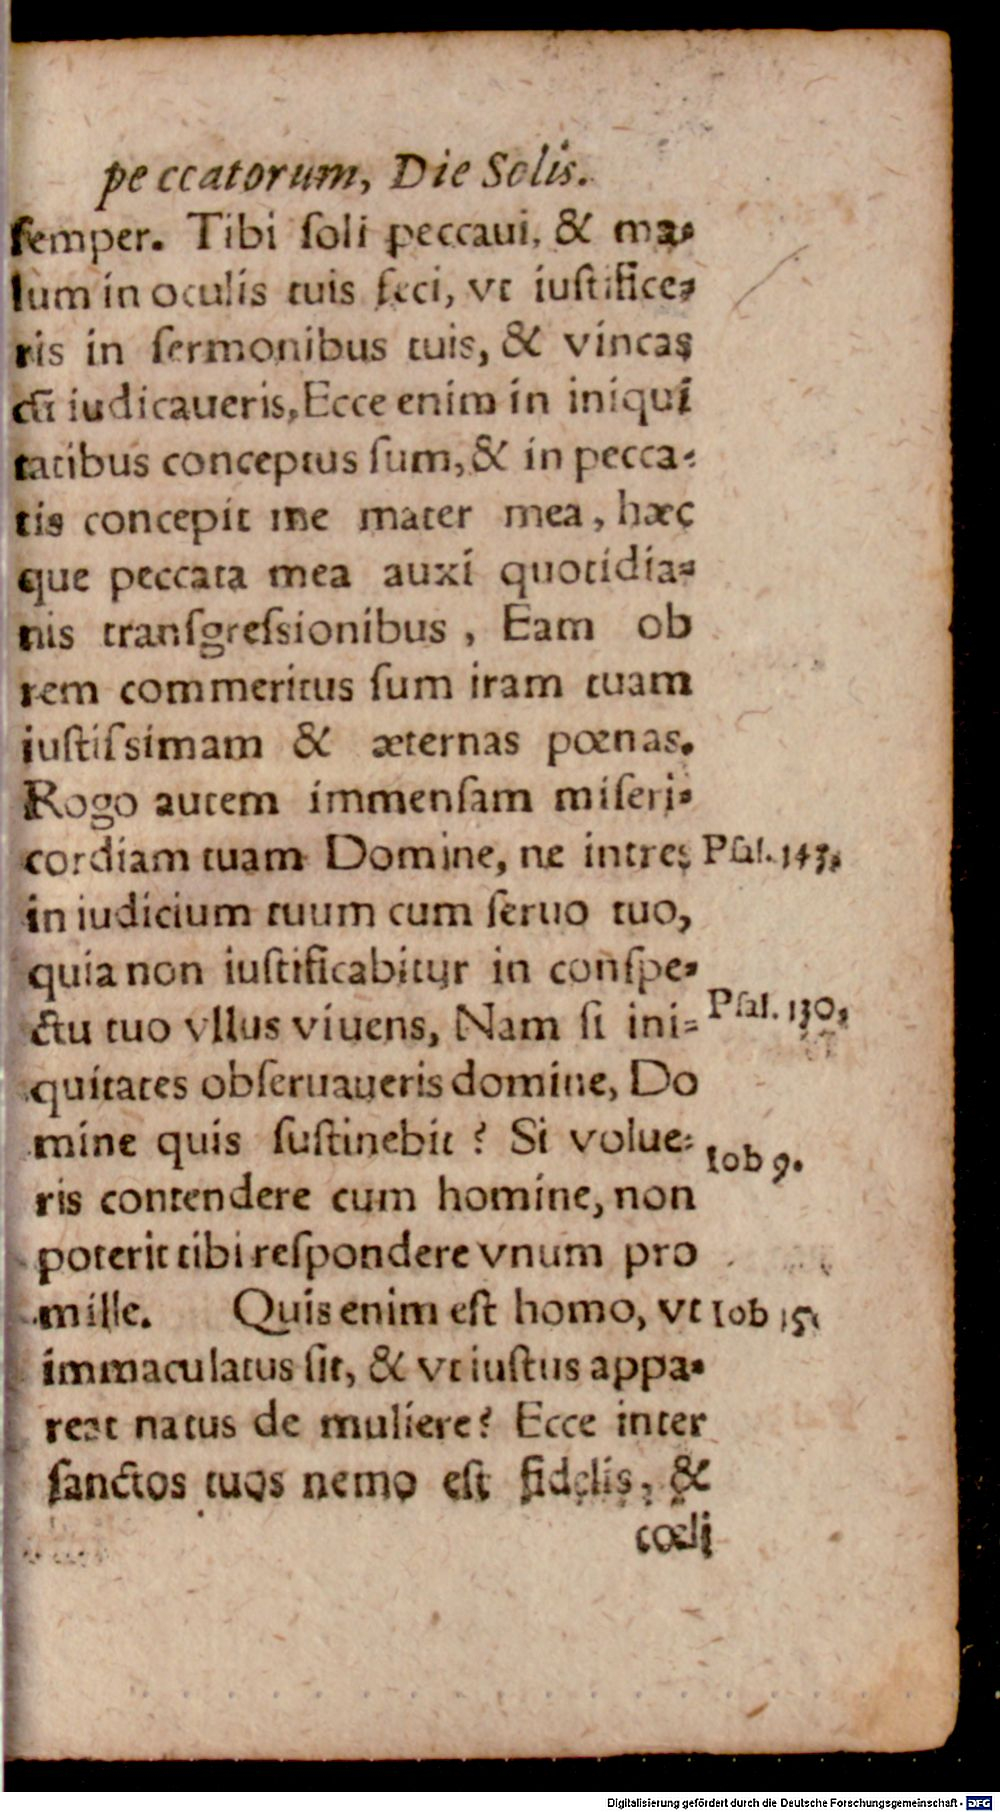 pe ccatorum, Die Solis.
ſemper. Tibi ſoli peccaui, & ma-
lum in oculis tuis feci, vt iuſtifice-
ris in ſermonibus tuis, & vincas
cū iudicaueris, Ecce enim in iniqui
tatibus conceptus ſum, & in pecca-
tis concepit me mater mea, hæc
que peccata mea auxi quotidia-
nis tranſgreſsionibus, Eam ob
rem commeritus ſum iram tuam
iuſtiſsimam & æternas pœnas.
Rogo autem immenſam miſeri-
cordiam tuam Domine, ne intres Pſal. 143.
in iudicium tuum cum ſeruo tuo,
quia non iuſtificabitur in conſpe-
ctu tuo vllus viuens, Nam ſi ini- Pſal. 130,
quitates obſeruaueris domine, Do
mine quis ſuſtinebit? Si volue- Iob 9.
ris contendere cum homine, non
poterit tibi reſpondere vnum pro
mille. Quis enim eſt homo, vt Iob 15.
immaculatus ſit, & vt iuſtus appa-
reat natus de muliere? Ecce inter
ſanctos tuos nemo eſt fidelis, &
cœli
Digitalisierung gefördert durch die Deutsche Forschungsgemeinschaft - DFG